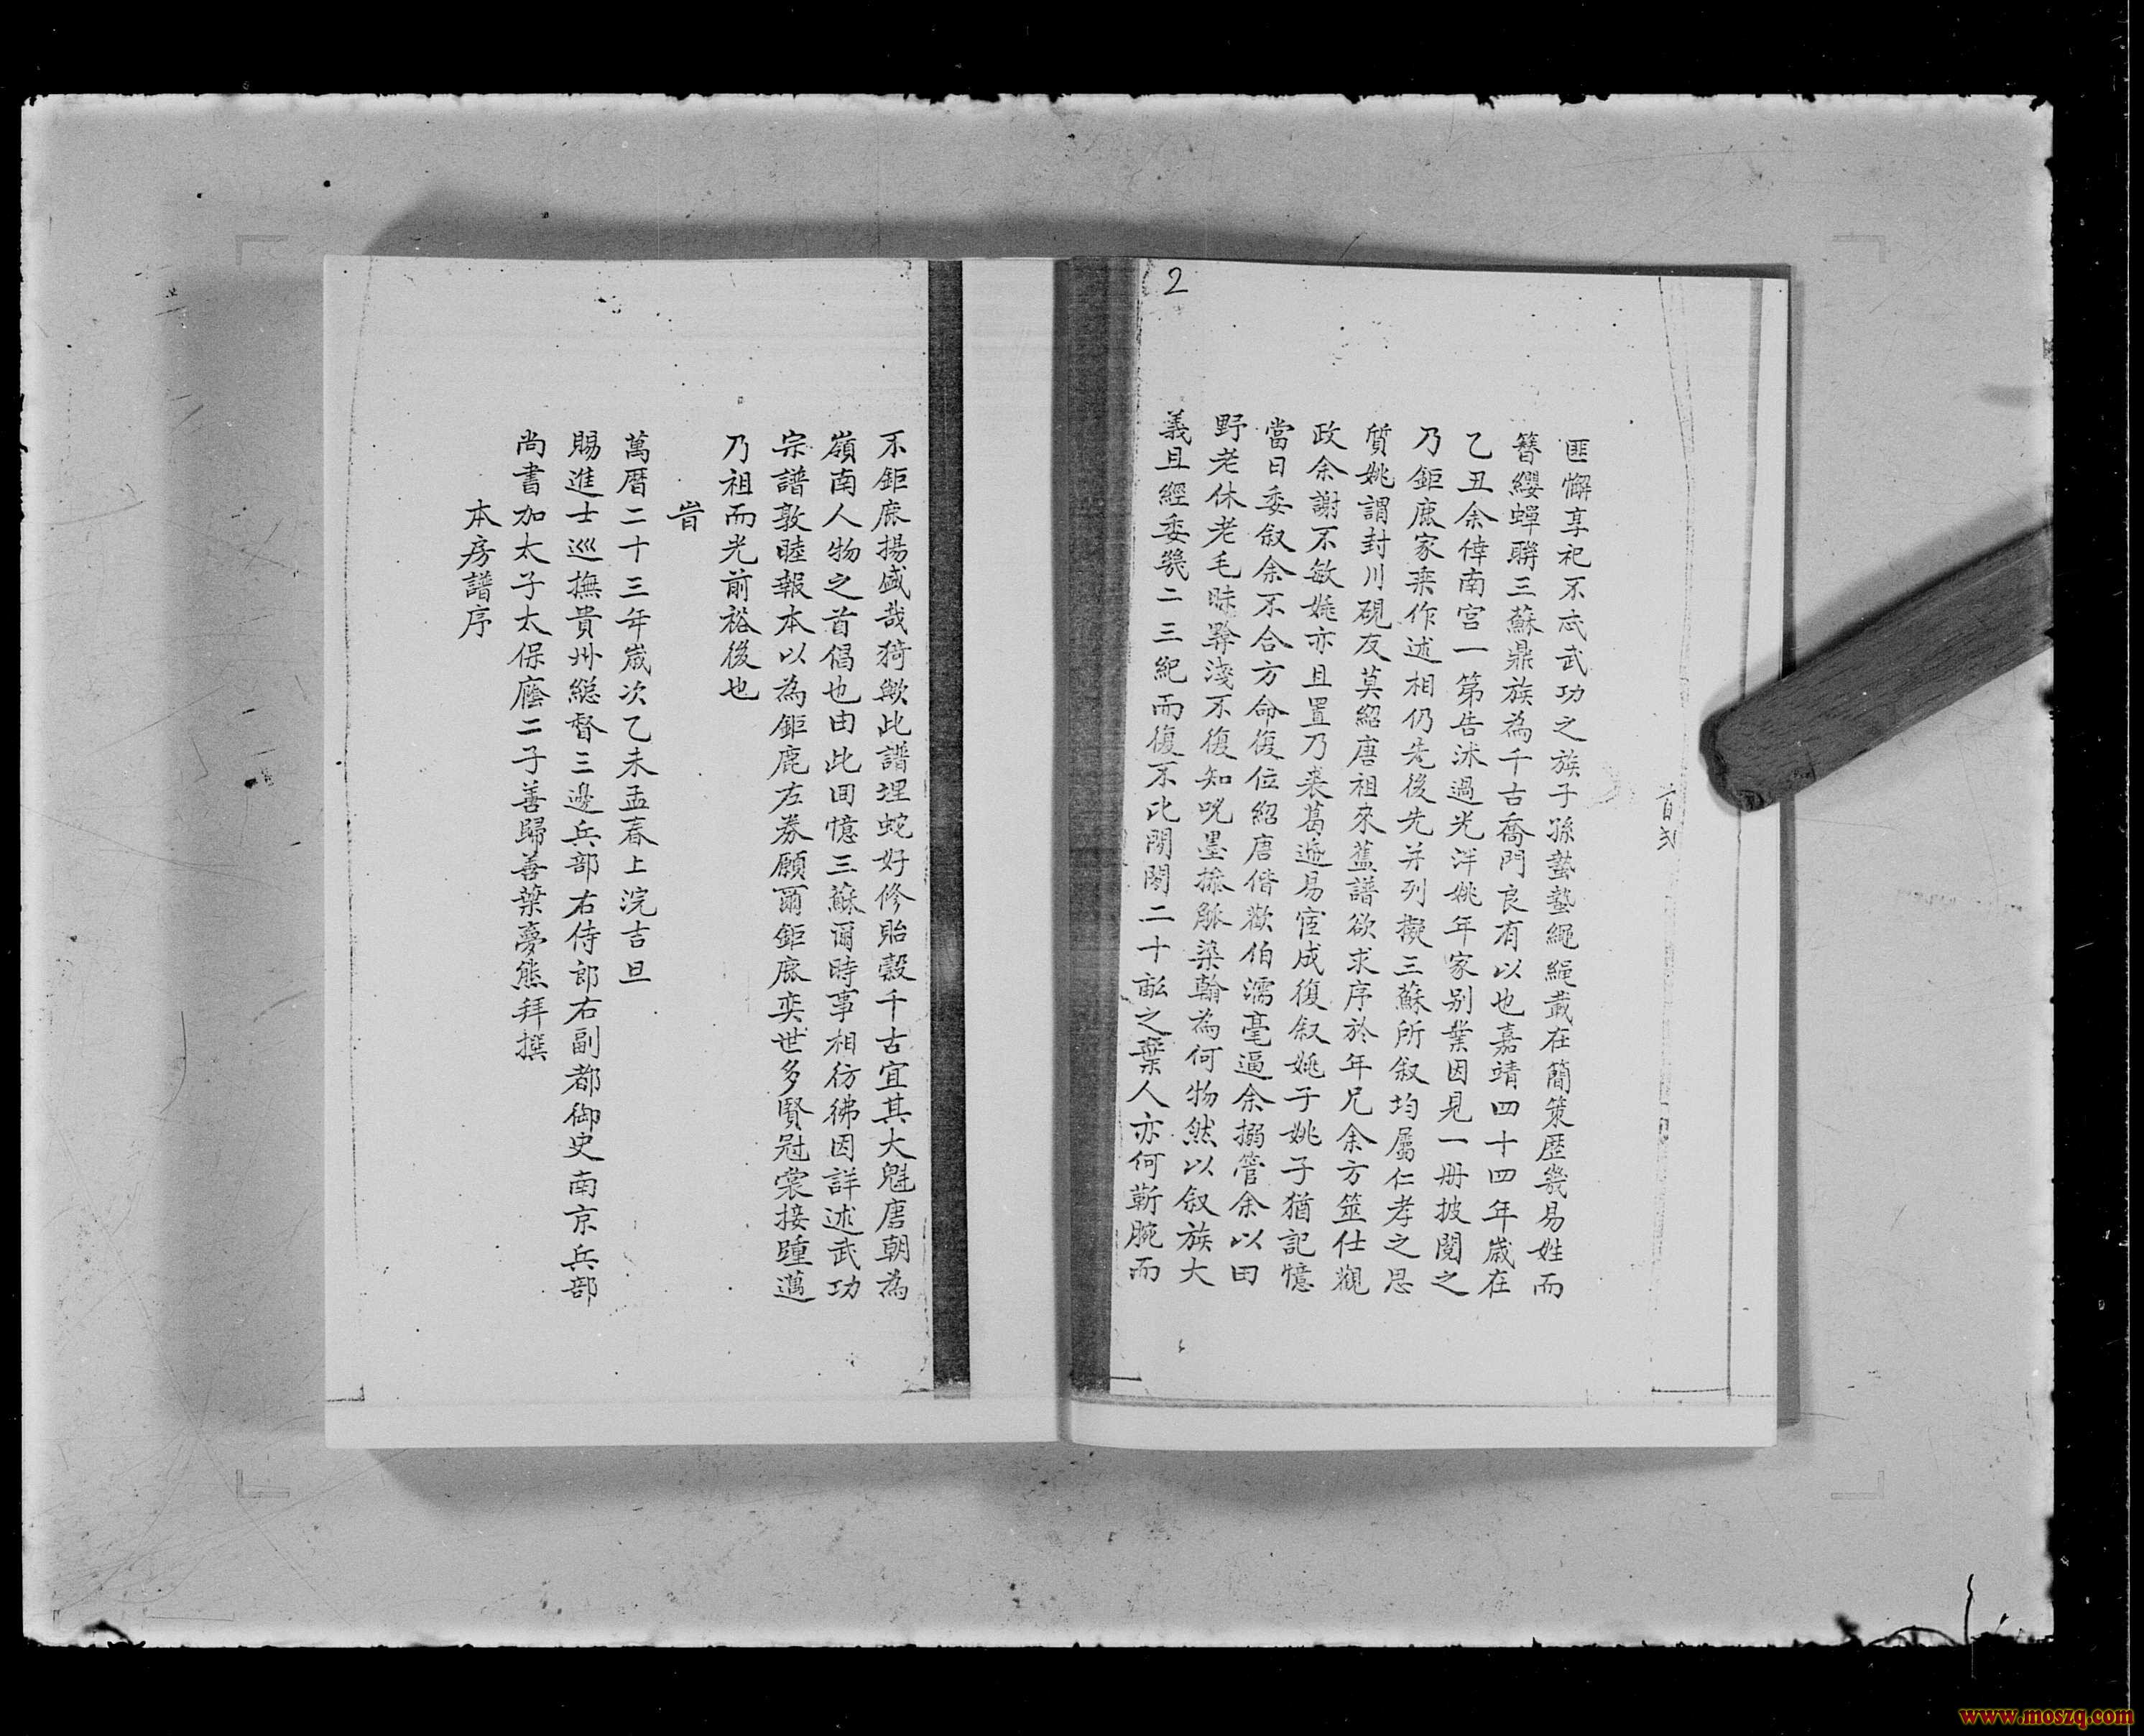 2
首弍
匪懈享祀不忒武功之族子孫蟄蟄繩繩載在簡策歷幾易姓而
簪纓蟬聯三蘇鼎族為千古喬門良有以也嘉靖四十四年歲在
乙丑余倖南宮一第告沐過光洋姚年家別業因見一冊披閱之
乃鉅鹿家乘作述相仍先後先并列擬三蘇所叙均屬仁孝之思
質姚謂封川硯友莫紹唐祖來舊譜欲求序於年兄余方筮仕觀
政余謝不敏姚亦且置乃裘葛遞易宦成復叙姚子姚子猶記憶
當日委叙余不合方命復位紹唐偕歡伯濡毫逼余搦管余以田
野老休老毛昧羿淺不復知吮墨揉脈染翰為何物然以叙族大
義且經委幾二三紀而復不比閒閒二十畝之葉人亦何蘄腕而
不鉅鹿揚盛哉猗歟此譜埋蛇好修貽穀千古宜其大魁唐朝為
嶺南人物之首倡也由此回憶三蘇爾時事相彷彿因詳述武功
宗譜敦睦報本以為鉅鹿左券願爾鉅鹿奕世多賢冠裳接踵邁
乃祖而光前裕後也
旹
萬曆二十三年崴次乙未孟春上浣吉旦
賜進士巡撫貴州総督三邊兵部右侍郎右副都御史南京兵部
尚書加太子太保廕二子善歸善葉夢熊拜撰
本房譜序
www.moszq.com